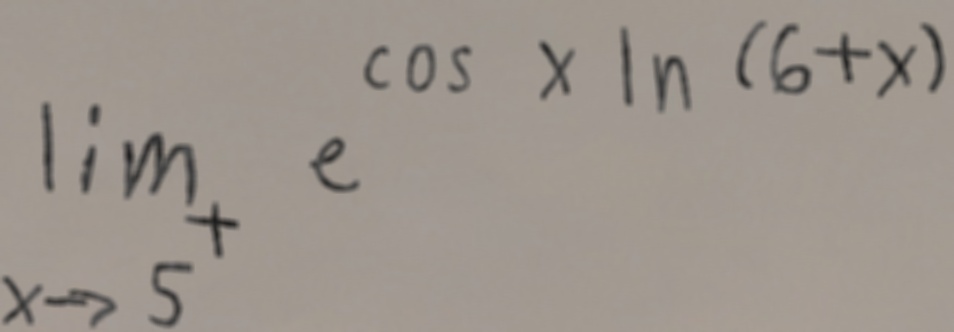 lim x→5⁺ e^{cos x ln (6+x)}